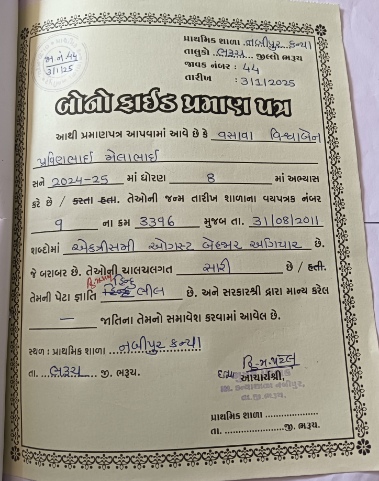 પ્રાથમિક શાળા નબીપુર કન્યા
તાલુકો ભરૂચ જીલ્લો ભરૂચ
જાવક નંબર : 44
તારીખ : 3/1/2025
જા નં 44
3/1/25
બોનો ફાઈડ પ્રમાણ પત્ર
આથી પ્રમાણપત્ર આપવામાં આવે છે કે વસાવા વિશ્વાબેન
પ્રવિણભાઈ મેલાભાઈ
સને 2024-25 માં ધોરણ 8 માં અભ્યાસ
કરે છે / કરતા હતા. તેઓની જન્મ તારીખ શાળાના વયપત્રક નંબર
9 ના ક્રમ 3396 મુજબ તા. 31/08/2011
શબ્દોમાં એકત્રીસમી ઓગસ્ટ બેહજાર અગિયાર છે.
જે બરાબર છે. તેઓની ચાલચલગત સારી છે / હતી.
તેમની પેટા જ્ઞાતિ હિન્દુ ભીલ છે. અને સરકારશ્રી દ્વારા માન્ય કરેલ
— જાતિના તેમનો સમાવેશ કરવામાં આવેલ છે.
સ્થળ : પ્રાથમિક શાળા નબીપુર કન્યા
તા. ભરૂચ જી. ભરૂચ.
આચાર્યશ્રી,
પ્રાથમિક શાળા
તા. જી. ભરૂચ.